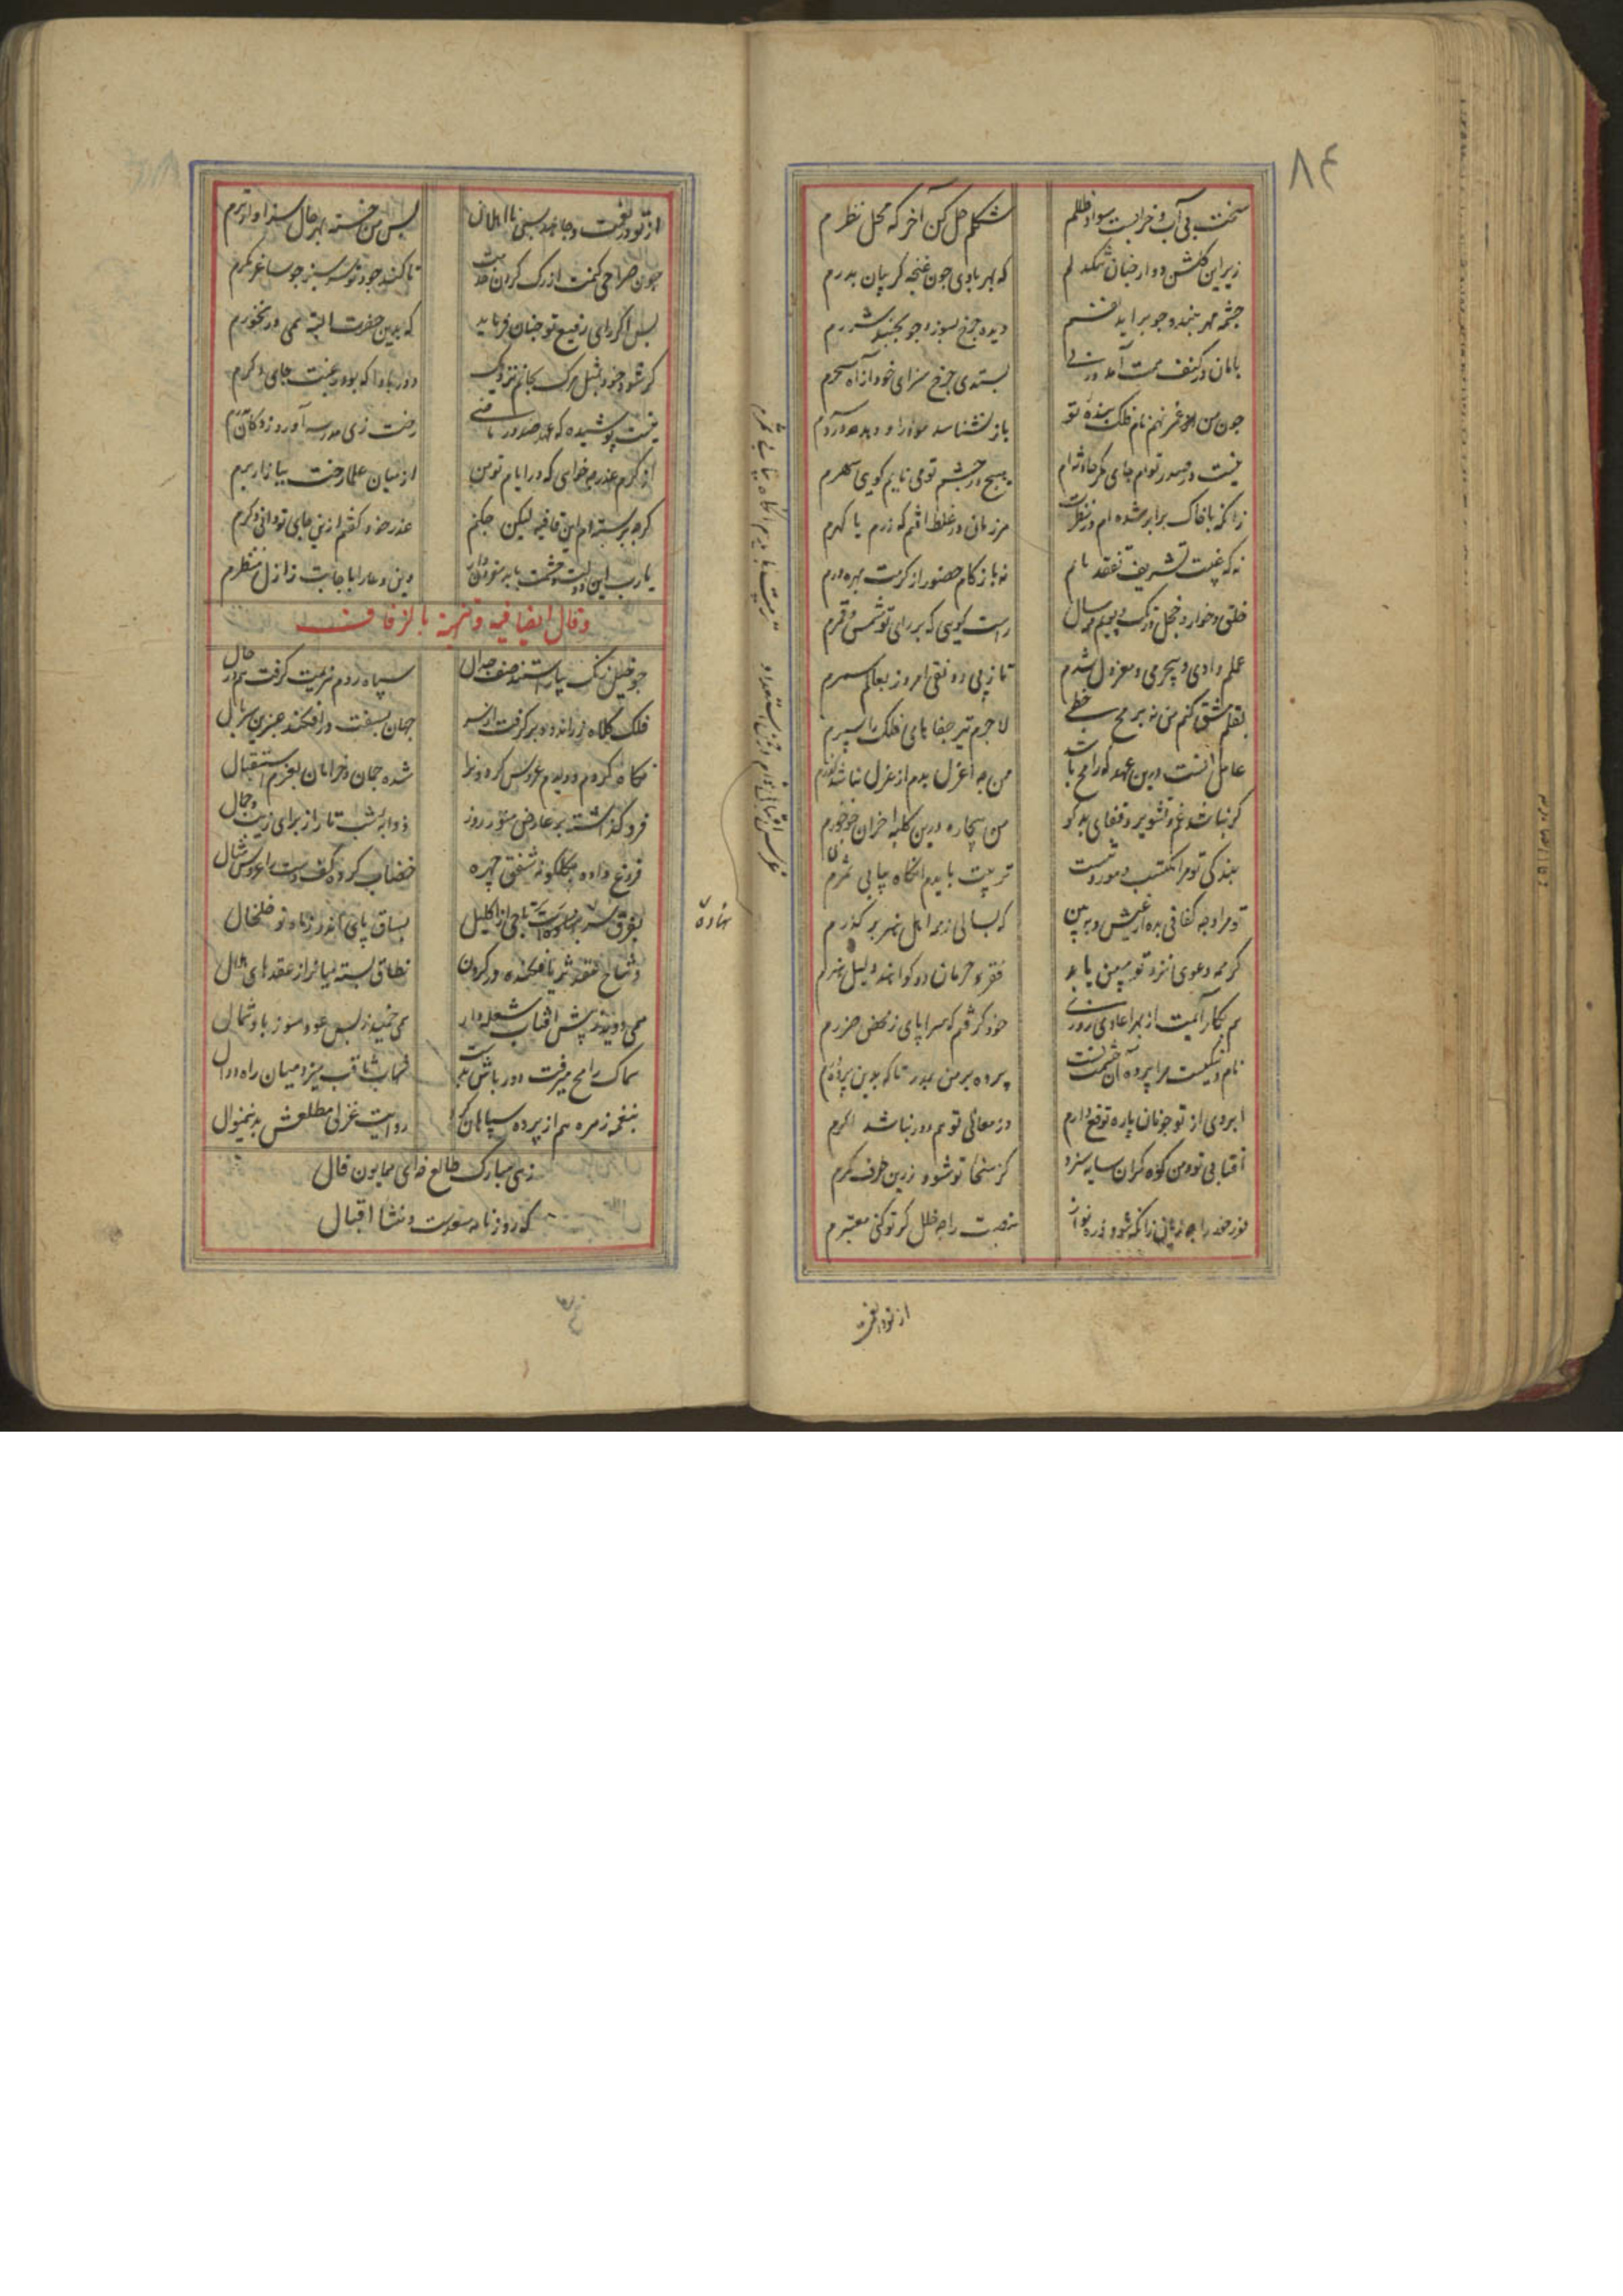 ۸۴
سخت بی آب و خرابست سواد ظللم شکلم حل کن آخر که محل نظرم
زیر این گلشن دوار جنان تنکدلم که بهر بادی جون غنجه کریبان بدرم
جشمه مهر ببندد جو براید نفسم دیده جرخ بسوزد جو بجنبد شررم
بستدی جرخ سزای خود از آه سحرم
جون من نهم نام فلک بنده تو باز نشناسد
نیست در صدر توام جای مکر حادثه ام هیچ در جشم تو می نایم کویی سهرم
زانکه با خاک برابر شده ام در نظرت مرزمانی در غلط افتم که زرم یا کهرم
نه که غیبت تشریف تفقد یابم نه باز کام حضور از کرمت بهره ورم
راست کویی که بر رای تو شمس و قمرم
علم دادی و بیجرمی معزول شدم تا زپی رونقی امروز بعالم سمرم
بقلم مشق کنم من نه برمح خطی لاجرم تیر جفاهای فلک را سپرم
عامل آنست درین عهد که رامح باشد من جه اعزل بدم از عزل نباشد کذرم
کر نباشد غم و تشویر ز قفای بدکو من بیجاره درین کلبه احزان جه خورم
بندکی تو مرا مکتسب و موروثست تربیت بایدم انکاه بیابی ثمرم
تو مرا وجه کفافی بده از عیش و ببین که بسالی ز همه اهل هنر بر کذرم
کر همه دعوی نزد تو مبین باید فقر و حرمان دو کواهند دلیل هنرم
هم بکار آیمت از بهر اعادی روزی خود کرفتم که سراپای ز محض ضررم
نام نیکیست مرا پرده آن حشمت تست پرده بر من بمدر تا که بدین پرده درم
ابروی از تو جونان پاره توقع دارم در معالی تو هم دور نباشد اکرم
آفتابی تو و من کوه کران سایه سزد کز سخا تو شود زرین طرف کمرم
نور خود را جه زیانی زانکه شود ذره نواز منصبت را جه خلل کر تو کنی معتبرم
از تو در نعمت و جاهند بسی نااهلان بس من خسته بهر حال سزاوارترم
جون صراحی کنمت از رک کردن خدمت تا کند جود تو سرسبز جو ساغر بکرم
بس اکر رای رفیع تو جنان فرماید که بدین حضرت البته نمی در نخورم
کر شود خود بمثل مرک بجانم نزدیک دور بادا که بود رغبت جای دکرم
نیست پوشیده که در عهد صدور ماضی رخت زی مدرسه آورد ز دکان پدرم
از کرم عذر جه خواهی که در ایام تو من از میان علما رخت ببازار برم
کرجه بر بسته ام این قافیه لیکن جکنم عذر خود کفتم ازین جای تو دانی و کرم
یارب این دولت و حشمت بابد مقرون دار وین دعا را باجابت ز ازل منتظرم
وقال ایضا فیه و تهنیة بالزفاف
جو خیل زنک بیاراستند صف جدال سپاه روم هزیمت کرفت هم در حال
فلک کلاه زراندود بر کرفت از سر جهان بسفت در افکند عنبرین سربال
نکاه کردم و دیدم عروس کردون را شده جمان و خرامان بعزم استقبال
فرو کذاشته بر عارض منور روز ذوابه شب تار از برای زیب و جمال
فروغ داده بکلکونه شفق چهره خضاب کرده کف دست را عروس مثال
بفرق سر بر نهاده تاجی از اکلیل بساق پای اندر ز ماه نو خلخال
وشاح عقد ثریا فکنده در کردن نطاقی بسته میانرا از عقدهای لال
همی دوید ز پیش آفتاب مشعله دار همی دمید ز پس عود سوز باد شمال
سماک رامح میرفت دور باش بدست شهاب ثاقب میزد میان راه دوال
بنغمه زهره هم از پرده سپاهان کرد روایت غزلی مطلعش بدینمنوال
زهی مبارک طالع زهی همایون فال
که روزنامه سعدست و منشا اقبال
نهاده
تربیت بایدم انکاه بیابی ثمرم
از تو در نعمت